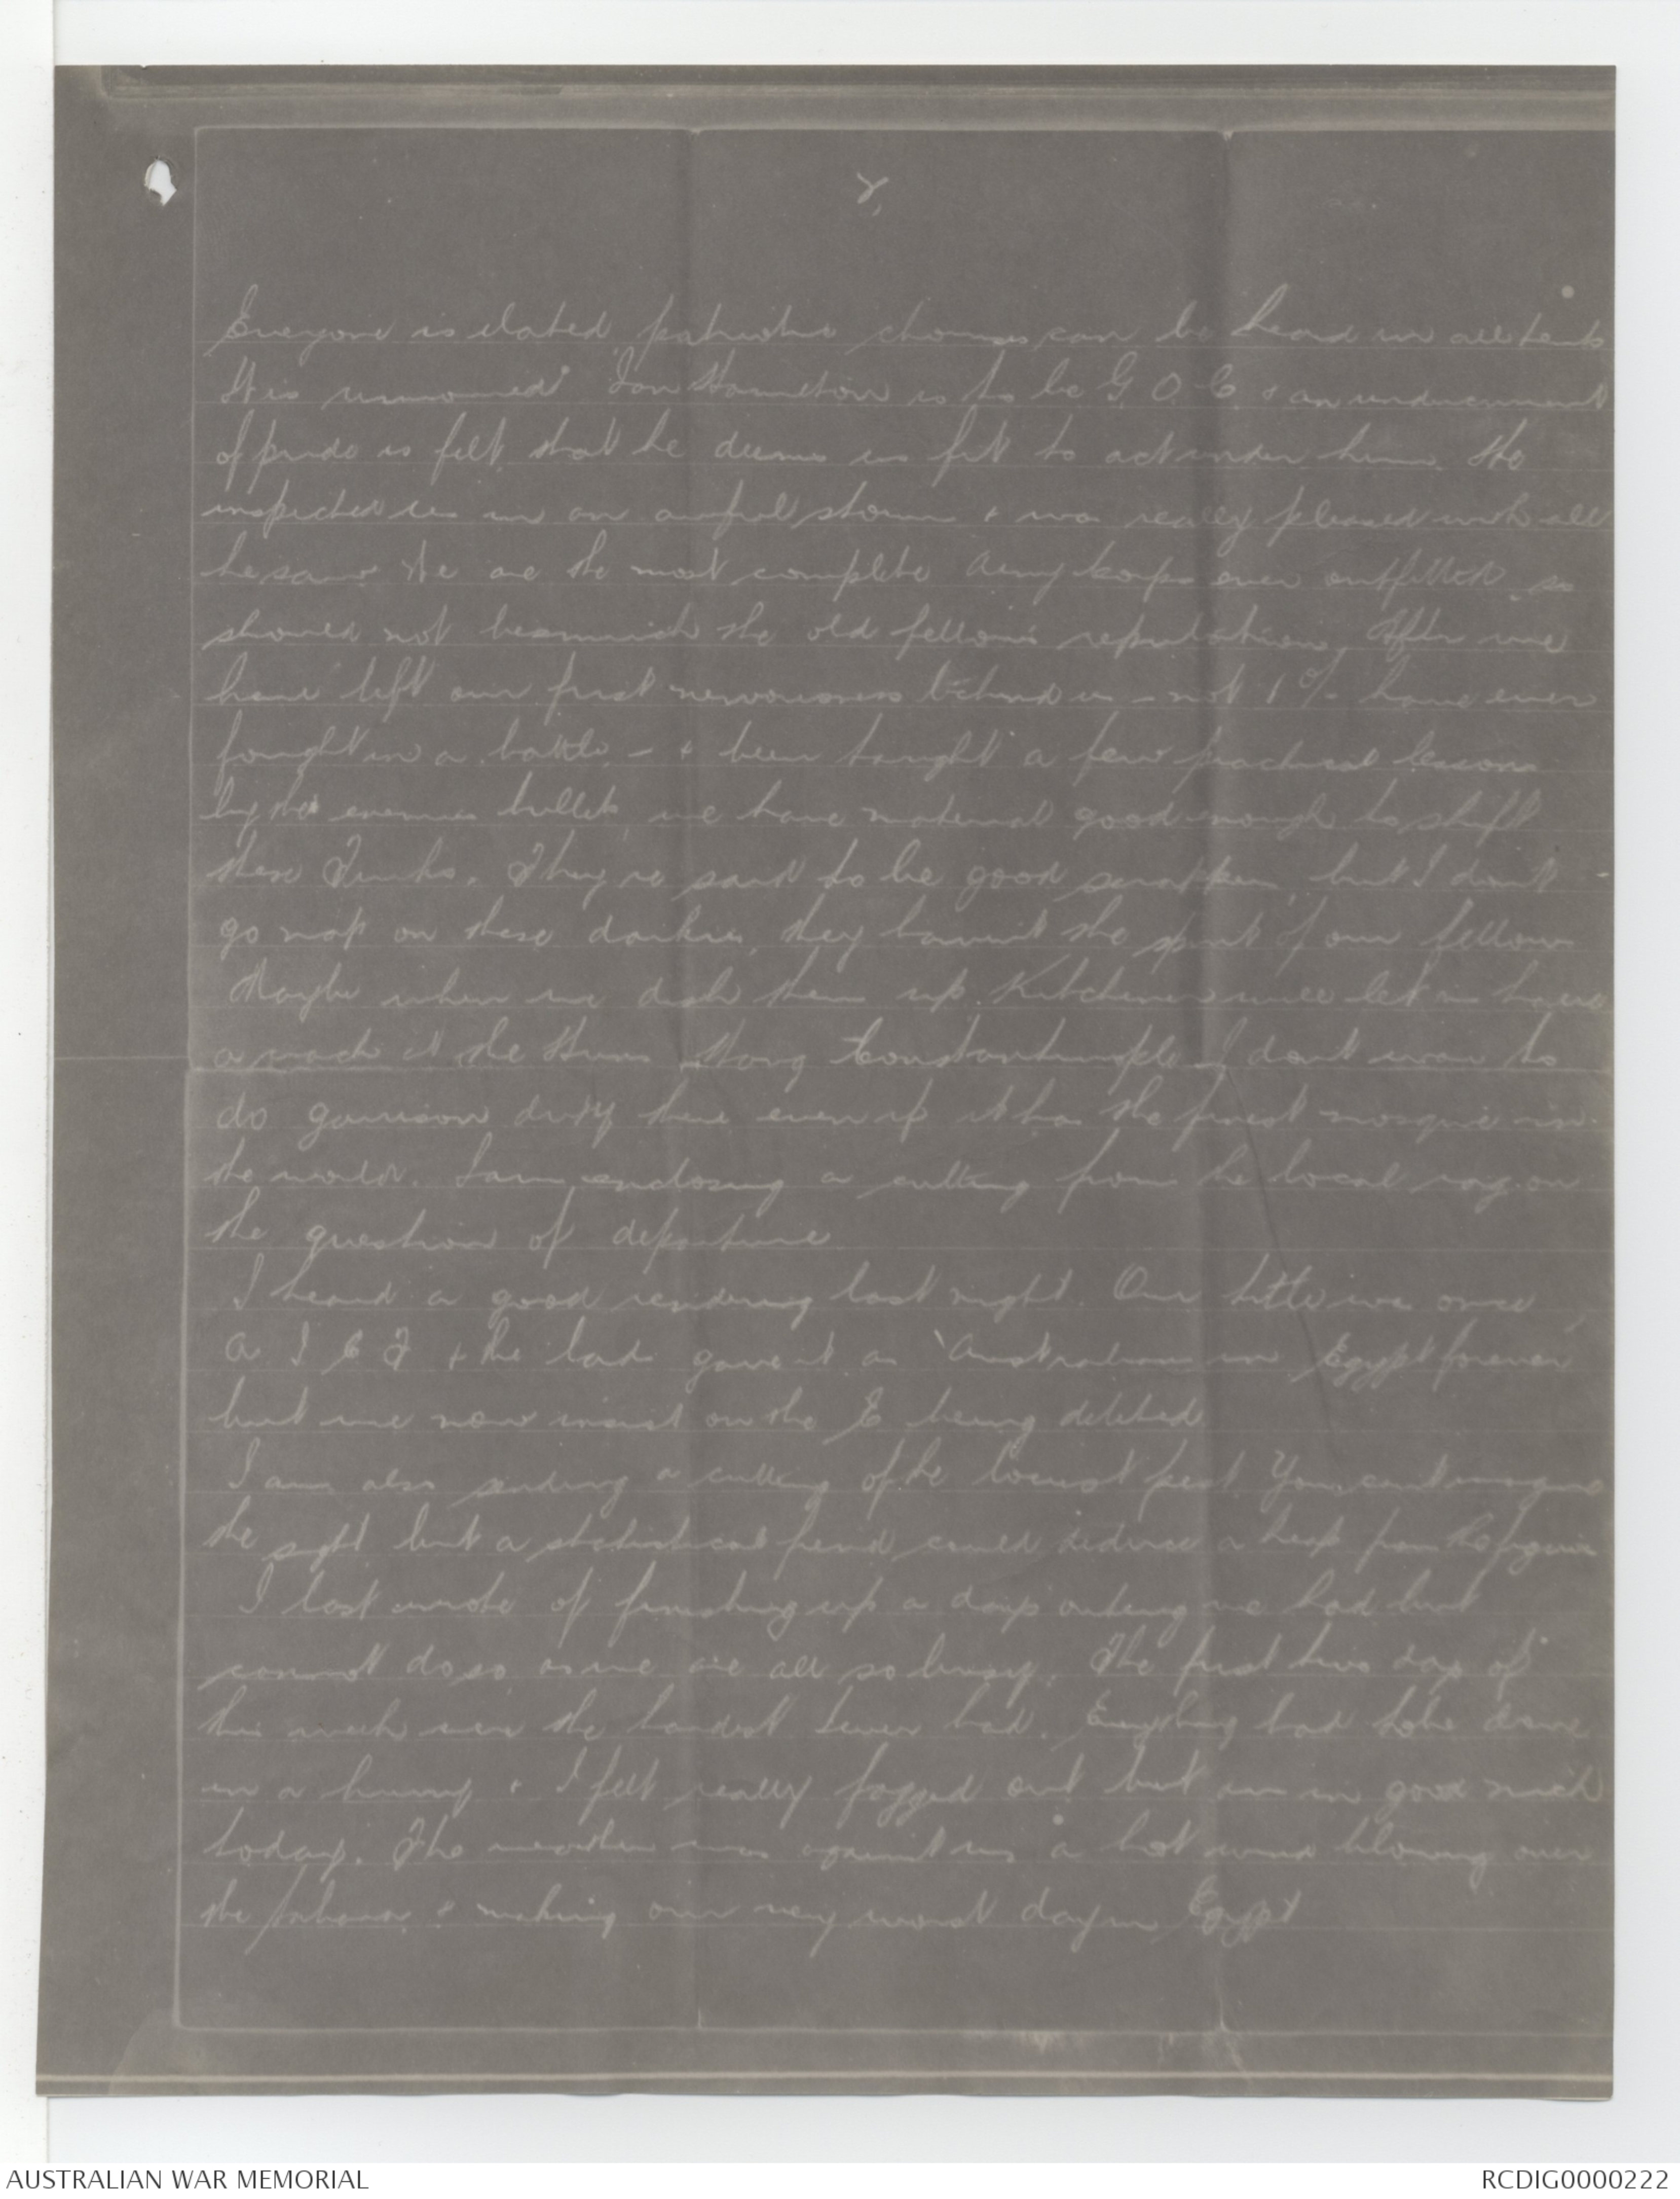 Everyone is elated, patriotic choruses can be heard in all tents
It is rumoured Ian Hamilton is to be G. O. C. & an undercurrent
of pride is felt, that he deems us fit to act under him. He
inspected us in an awful storm & was really pleased with all
he saw We are the most complete Army Corps ever outfitted, so
should not besmirch the old fellow's reputation. After we
have left our first nervousness behind us - not 1% have ever
fought in a battle, - & been taught a few practical lessons
by the enemies bullets, we have material good enough to shift
these Turks. They're said to be good scrappers, but I don't
go nap on these darkies, they haven't the spirit of our fellows
Maybe when we dish them up. Kitchener will let us have
a smack at the Huns Hang Constantinople I dont want to
do garrison duty there even if it has the finest mosque in
the world. I am enclosing a cutting from the local rag on
the question of departure
I heard a good rendering last night. Our title was once
A I E F & the lad gave it as "Australians in Egypt forever"
but we now insist on the E being deleted
I am also sending a cutting of the locust pest. You cant imagine
the sight but a statistical fiend could deduce a heap from the figures
I last wrote of finishing up a days outing we had but
cannot do so as we are all so busy. The first two days of
this week were the hardest I ever had. Everything had to be done
in a hurry & I felt really fagged out but am in good nick
today. The weather was against us, a hot wind blowing over
the & making our very worst day in Egypt
AUSTRALIAN WAR MEMORIAL
RCDIG0000222